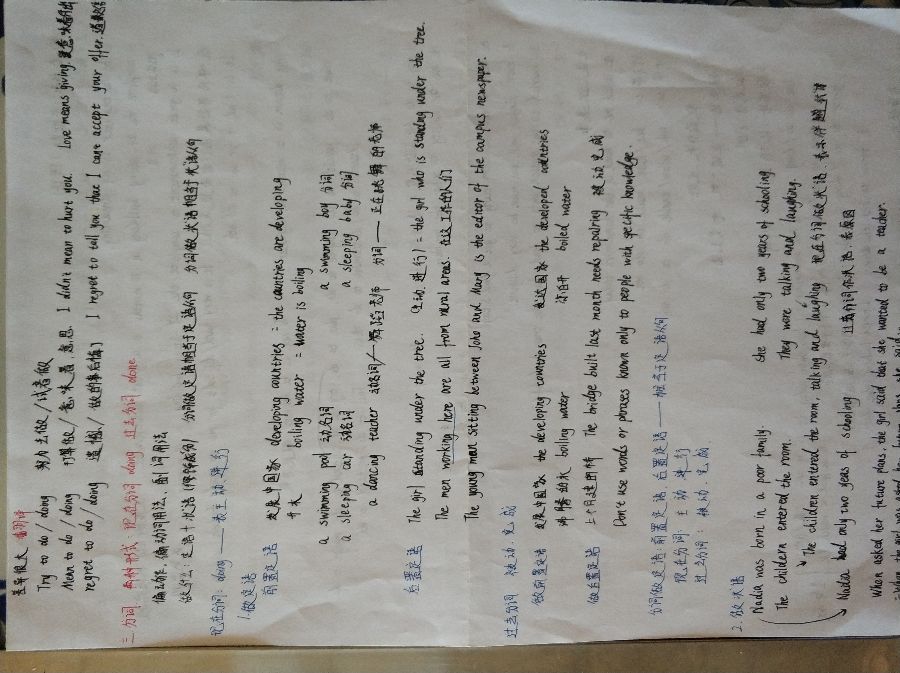 差异很大 看翻译
Try to do / doing 努力去做/试着做
Mean to do / doing 打算做/意味着,意思 I didn't mean to hurt you. Love means giving
regret to do / doing 遗憾/做的事后悔 I regret to tell you that I can't accept your offer.
三.分词. 两种形式,现在分词 doing 过去分词 done
偏形容词用法、副词用法
做什么:定语+状语(修饰成份) 分词做定语相当于定语从句 分词做状语相当于状语从句
现在分词:doing —— 表主动、进行
1.做定语
前置定语 发展中国家 developing countries = the countries are developing
开水 boiling water = water is boiling
a swimming pool 动名词 a swimming boy 分词
a sleeping car 动名词 a sleeping baby 分词
a dancing teacher 动名词 舞蹈老师 分词 —— 正在跳舞的老师
后置定语 The girl standing under the tree. 主动.进行 = the girl who is standing under the tree.
The men working here are all from rural areas. 在这工作的人们
The young man sitting between John and Mary is the editor of the campus newspaper.
过去分词 被动,完成
做前置定语 发展中国家 the developing countries 发达国家 the developed countries
沸腾的水 boiling water 凉白开 boiled water
做后置定语 上个月建的桥 The bridge built last month needs repairing 被动完成
Don't use words or phrases known only to people with specific knowledge.
分词做定语:前置定语 后置定语 —— 相当于定语从句
现在分词:主动 进行
过去分词:被动.完成
2.做状语
Nadia was born in a poor family She had only two years of schooling.
The childern entered the room. They were talking and laughing.
The children entered the room, talking and laughing 现在分词做状语.表示伴随状语
Nadia had only two years of schooling 过去分词作状语.表原因
When asked her future plans, the girl said that she wanted to be a teacher.